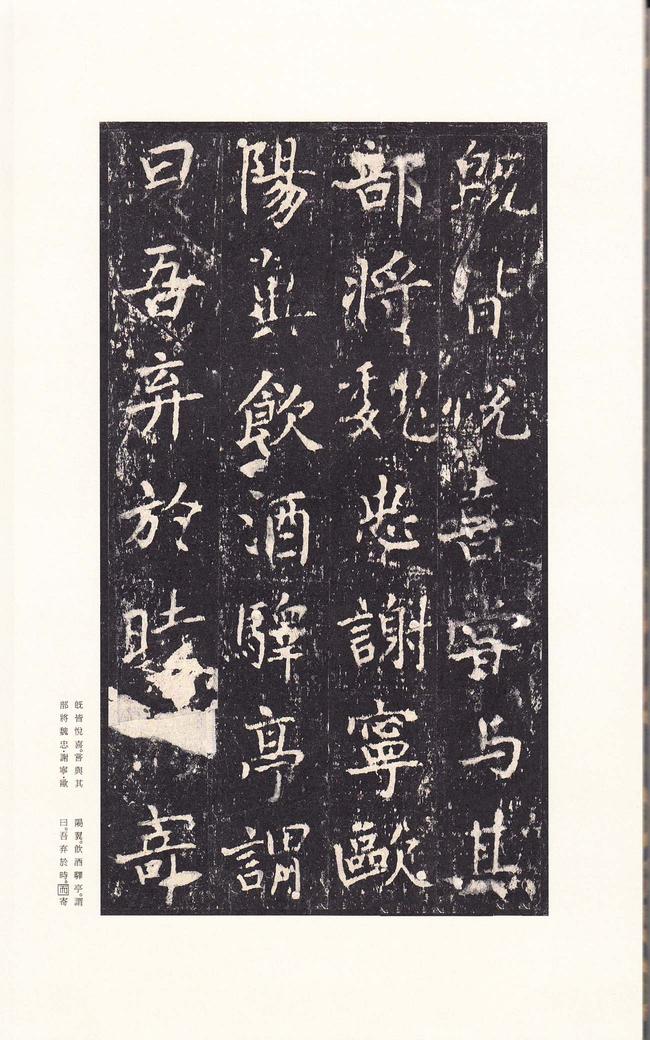 既皆悅喜甞与其
部將魏忠謝寧歐
陽翼飲酒驛亭謂
曰吾弃於時寄
既皆悅喜。嘗與其
部將魏忠・謝寧・歐
陽翼。飲酒驛亭。謂
曰。吾弃於時。而寄